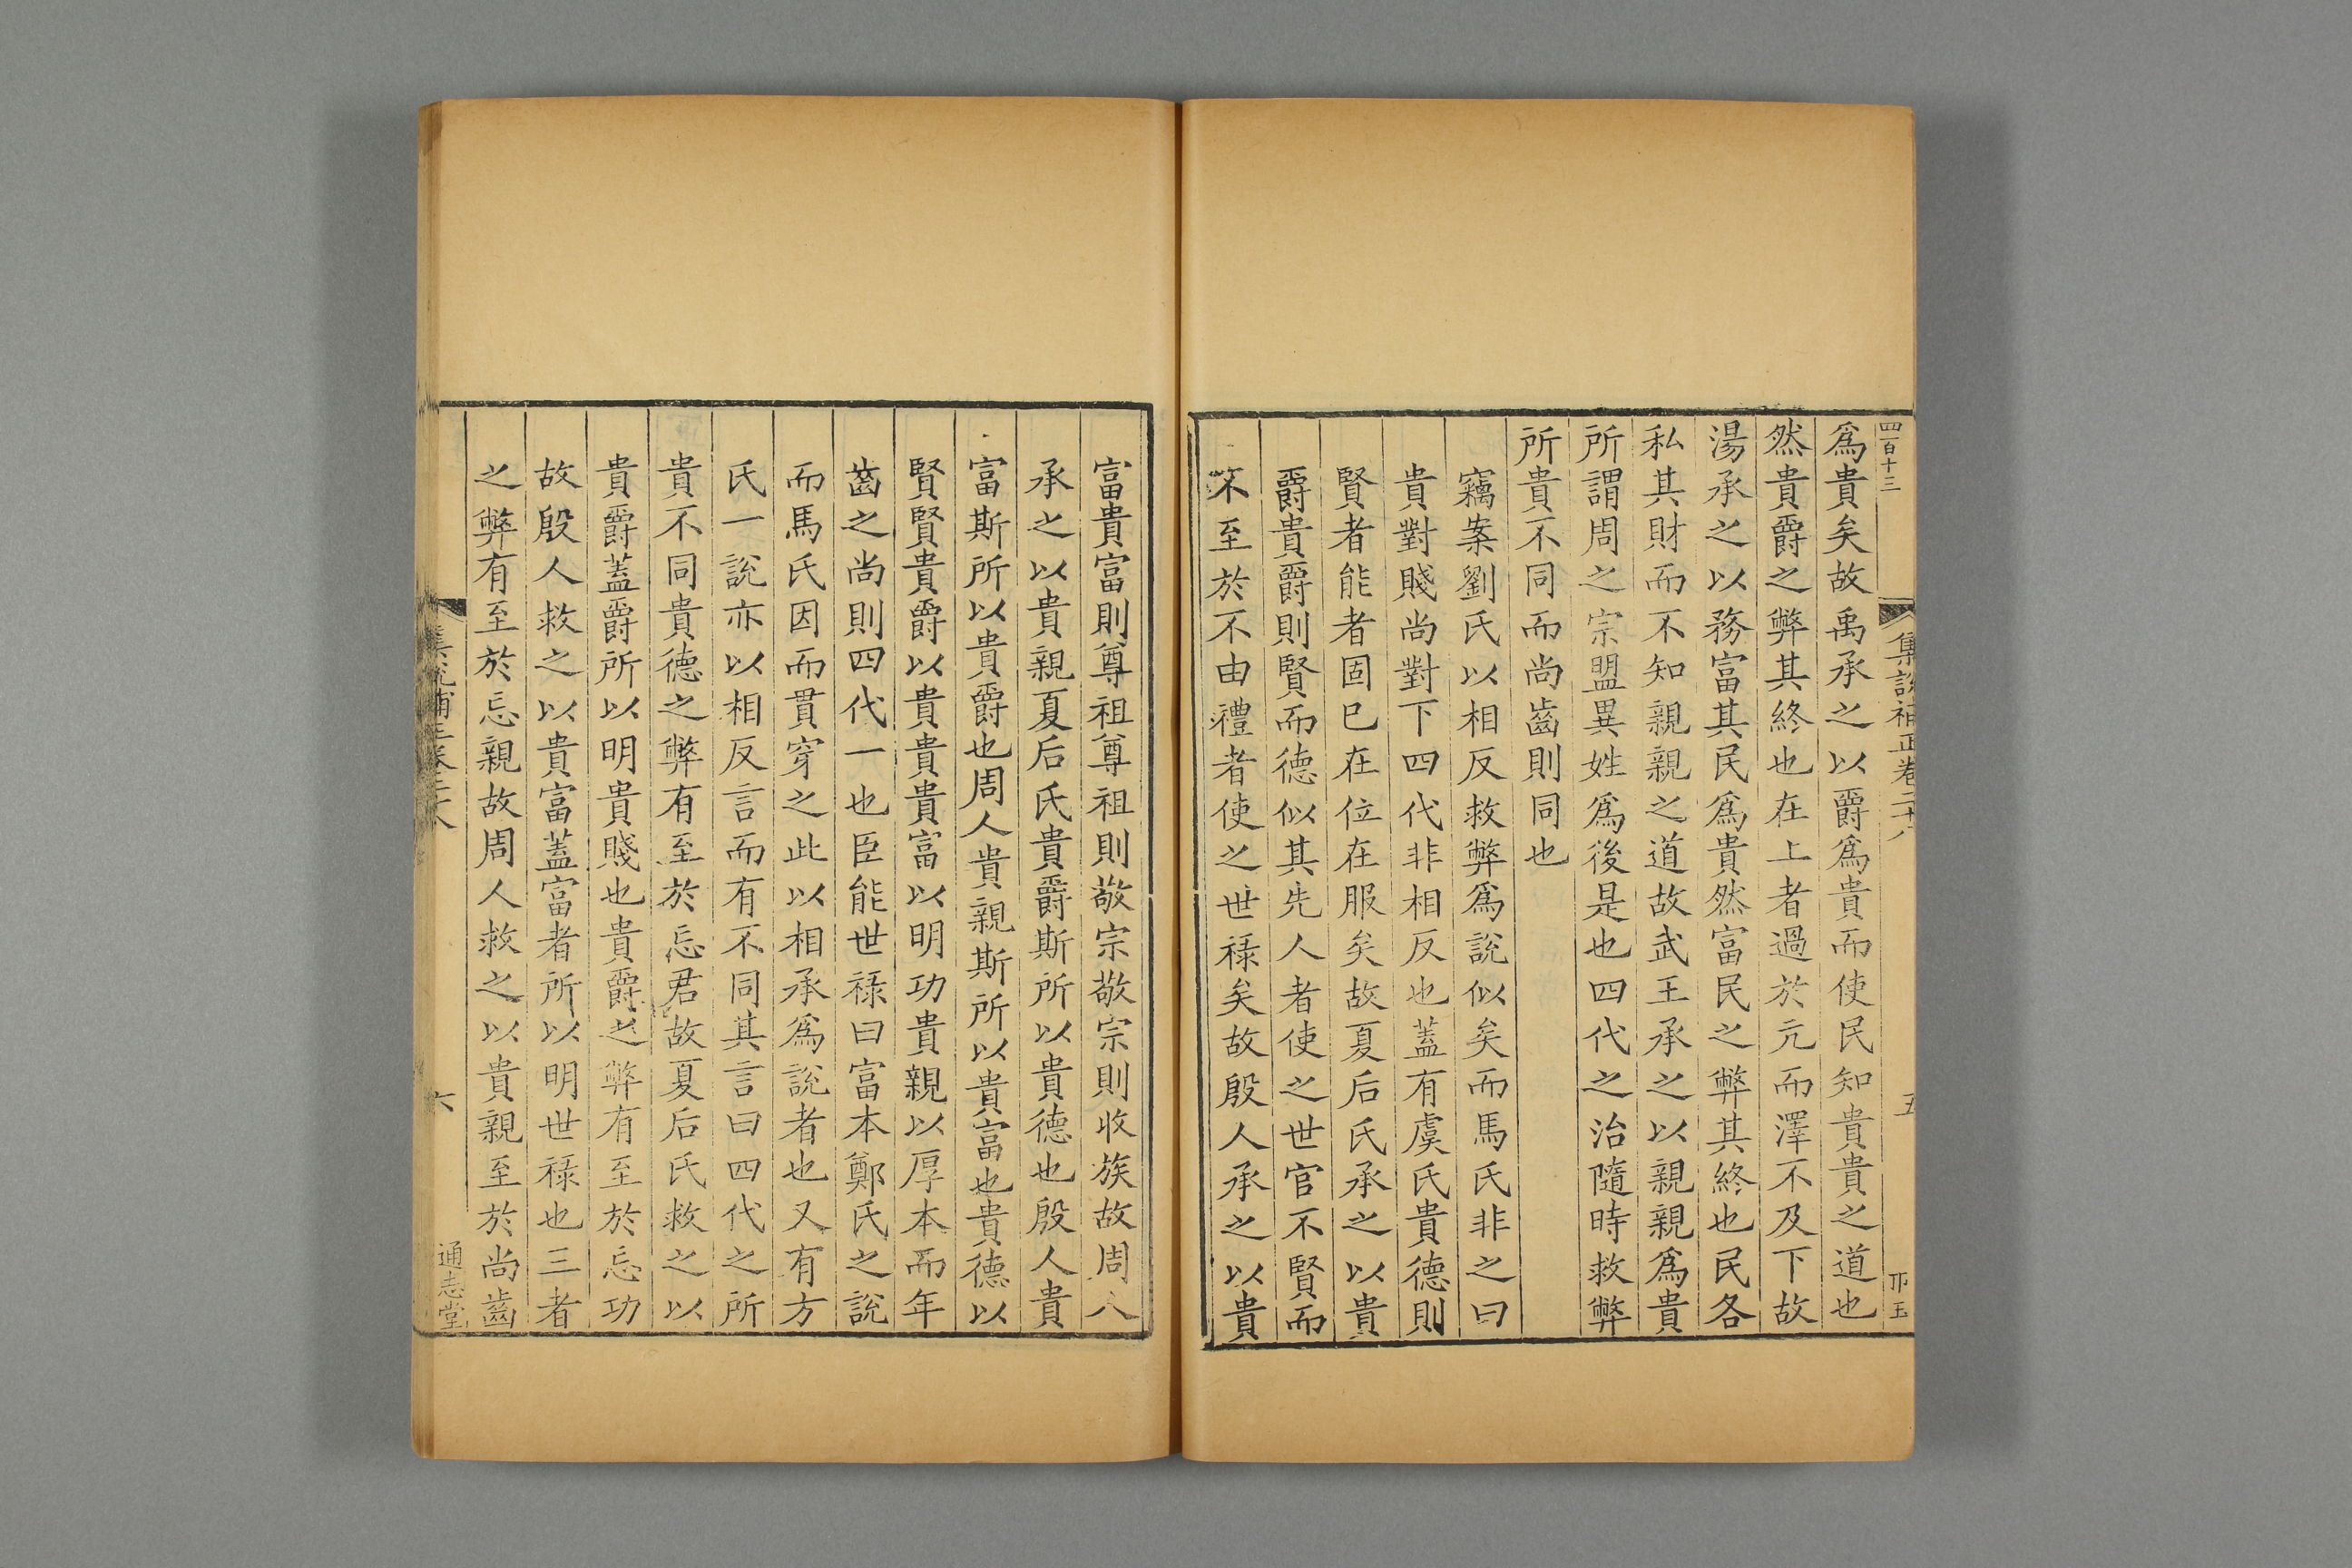 四百十三
集說補正卷二十八
五
爲貴矣故禹承之以爵爲貴而使民知貴貴之道也
然貴爵之弊其終也在上者過於亢而澤不及下故
湯承之以務富其民爲貴然富民之弊其終也民各
私其財而不知親親之道故武王承之以親親爲貴
所謂周之宗盟異姓爲後是也四代之治隨時救弊
所貴不同而尚齒則同也
竊案劉氏以相反救弊爲說似矣而馬氏非之曰
貴對賤尚對下四代非相反也蓋有虞氏貴德則
賢者能者固巳在位在服矣故夏后氏承之以貴
爵貴爵則賢而德似其先人者使之世官不賢而
不至於不由禮者使之世祿矣故殷人承之以貴
富貴富則尊祖尊祖則敬宗敬宗則收族故周人
承之以貴親夏后氏貴爵斯所以貴德也殷人貴
富斯所以貴爵也周人貴親斯所以貴富也貴德以
賢賢貴爵以貴貴貴富以明功貴親以厚本而年
齒之尚則四代一也臣能世祿曰富本鄭氏之說
而馬氏因而貫穿之此以相承爲說者也又有方
氏一說亦以相反言而有不同其言曰四代之所
貴不同貴德之弊有至於忘君故夏后氏救之以
貴爵蓋爵所以明貴賤也貴爵之弊有至於忘功
故殷人救之以貴富蓋富者所以明世祿也三者
之弊有至於忘親故周人救之以貴親至於尚齒
集說補正卷二十八
六
通志堂